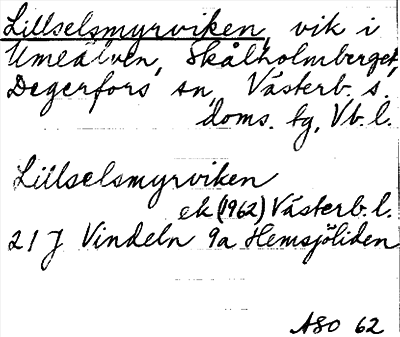 Lillselsmyrviken, vik i
Umeälven, Skålholmberget,
Degerfors sn, Västerb. s.
doms. tg, Vb. l.
Lillselsmyrviken
ek (1962) Västerb. l.
21 J Vindeln 9a Hemsjöliden
ASO 62